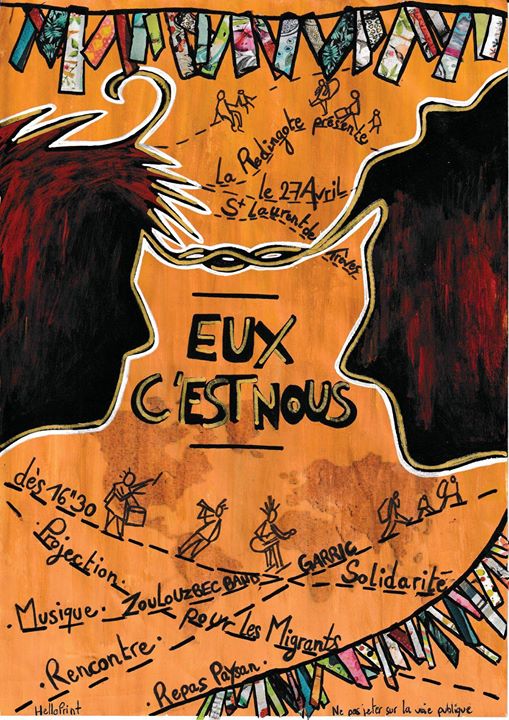 La Redingote présente
le 27 Avril
St Laurent de Trèves
EUX
C'EST NOUS
dès 16h30
Projection.
. Musique. ZOULOUZBEC BAND GARRIG
. Rencontre.
Solidarité
Pour les Migrants
. Repas Paysan.
HelloPrint
Ne pas jeter sur la voie publique